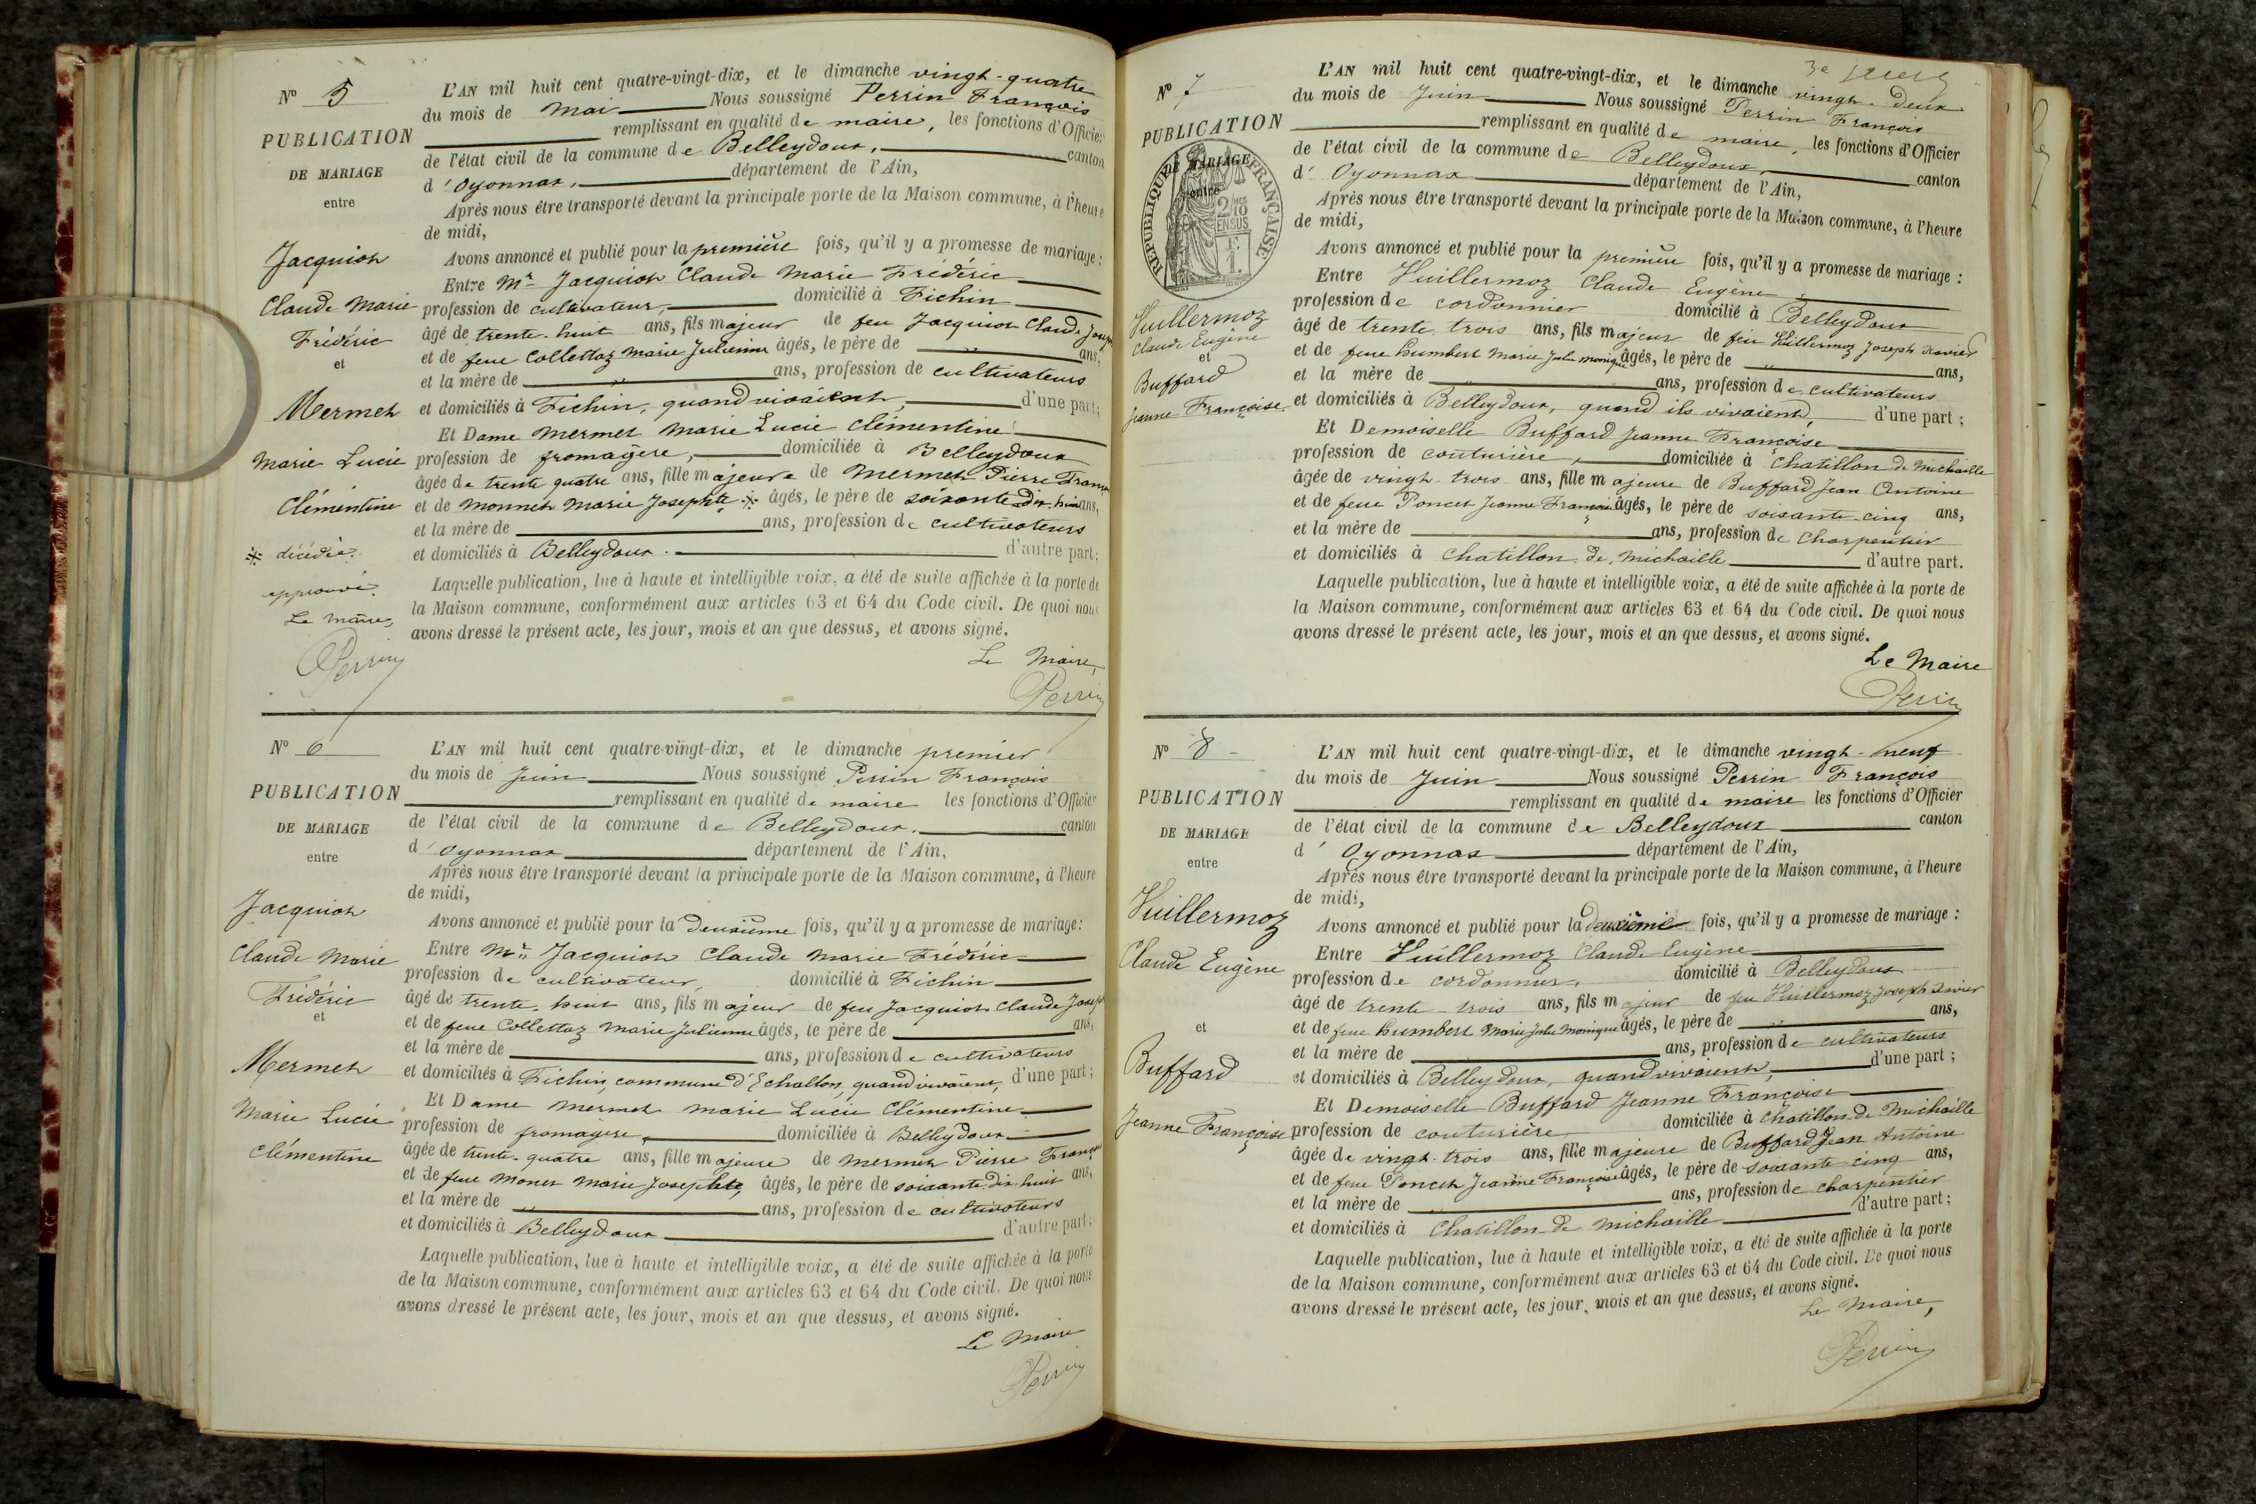 N° 5
PUBLICATION
DE MARIAGE
entre
Jacquiot
Claude Marie
Frédéric
et
Mermet
Marie Lucie
Clémentine
※ décédée.
approuvé.
Le maire,
Perrin
L'AN mil huit cent quatre-vingt-dix, et le dimanche vingt-quatre
du mois de Mai Nous soussigné Perrin François
remplissant en qualité de maire, les fonctions d'Officier
de l'état civil de la commune de Belleydoux, canton
d'Oyonnax, département de l'Ain,
Après nous être transporté devant la principale porte de la Maison commune, à l'heure
de midi,
Avons annoncé et publié pour la première fois, qu'il y a promesse de mariage :
Entre Mr Jacquiot Claude Marie Frédéric
profession de cultivateur, domicilié à Fichin
âgé de trente-huit ans, fils majeur de feu Jacquiot Claude Joseph
et de feue Collettaz Marie Julienne âgés, le père de " ans,
et la mère de " ans, profession de cultivateurs
et domiciliés à Fichin, quand vivaient, d'une part;
Et Dame Mermet Marie Lucie Clémentine
profession de fromagère, domiciliée à Belleydoux
âgée de trente quatre ans, fille majeure de Mermet Pierre Franç
et de Monnet Marie Josephte ※ âgés, le père de soixante-dix-huit ans,
et la mère de ans, profession de cultivateurs
et domiciliés à Belleydoux. d'autre part;
Laquelle publication, lue à haute et intelligible voix, a été de suite affichée à la porte de
la Maison commune, conformément aux articles 63 et 64 du Code civil. De quoi nous
avons dressé le présent acte, les jour, mois et an que dessus, et avons signé.
Le Maire,
Perrin
N° 6
PUBLICATION
DE MARIAGE
entre
Jacquiot
Claude Marie
Frédéric
et
Mermet
Marie Lucie
Clémentine
L'AN mil huit cent quatre-vingt-dix, et le dimanche premier
du mois de Juin Nous soussigné Perrin François
remplissant en qualité de maire les fonctions d'Officier
de l'état civil de la commune de Belleydoux. canton
d'Oyonnax département de l'Ain,
Après nous être transporté devant la principale porte de la Maison commune, à l'heure
de midi,
Avons annoncé et publié pour la deuxième fois, qu'il y a promesse de mariage:
Entre Mr Jacquiot Claude Marie Frédéric
profession de cultivateur, domicilié à Fichin
âgé de trente-huit ans, fils majeur de feu Jacquiot Claude Joseph
et de feue Collettaz Marie Julienne âgés, le père de ans,
et la mère de ans, profession de cultivateurs
et domiciliés à Fichin, commune d'Echallon, quand vivaient, d'une part;
Et Dame Mermet Marie Lucie Clémentine
profession de fromagère, domiciliée à Belleydoux
âgée de trente-quatre ans, fille majeure de Mermet Pierre Franç
et de feue Monet Marie Josephte, âgés, le père de soixante-dix-huit ans,
et la mère de " ans, profession de cultivateurs
et domiciliés à Belleydoux d'autre part;
Laquelle publication, lue à haute et intelligible voix, a été de suite affichée à la porte
de la Maison commune, conformément aux articles 63 et 64 du Code civil. De quoi nous
avons dressé le présent acte, les jour, mois et an que dessus, et avons signé.
Le Maire
Perrin
3e
N° 7
PUBLICATION
DE MARIAGE
entre
RÉPUBLIQUE FRANÇAISE
2/10
EN SUS
Vuillermoz
Claude Eugène
et
Buffard
Jeanne Françoise.
L'AN mil huit cent quatre-vingt-dix, et le dimanche vingt-deux
du mois de Juin Nous soussigné Perrin François
remplissant en qualité de maire, les fonctions d'Officier
de l'état civil de la commune de Belleydoux, canton
d'Oyonnax département de l'Ain,
Après nous être transporté devant la principale porte de la Maison commune, à l'heure
de midi,
Avons annoncé et publié pour la première fois, qu'il y a promesse de mariage :
Entre Vuillermoz Claude Eugène
profession de cordonnier domicilié à Belleydoux
âgé de trente-trois ans, fils majeur de feu Vuillermoz Joseph Xavier
et de feue humbert Marie Julie Monique âgés, le père de " ans,
et la mère de " ans, profession de cultivateurs
et domiciliés à Belleydoux, quand ils vivaient, d'une part ;
Et Demoiselle Buffard Jeanne Françoise
profession de couturière, domiciliée à Chatillon de Michaille
âgée de vingt-trois ans, fille majeure de Buffard Jean Antoine
et de feue Poncet Jeanne Françoise âgés, le père de soixante-cinq ans,
et la mère de ans, profession de Charpentier
et domiciliés à Chatillon de Michaille d'autre part.
Laquelle publication, lue à haute et intelligible voix, a été de suite affichée à la porte de
la Maison commune, conformément aux articles 63 et 64 du Code civil. De quoi nous
avons dressé le présent acte, les jour, mois et an que dessus, et avons signé.
Le Maire
Perrin
N° 8
PUBLICATION
DE MARIAGE
entre
Vuillermoz
Claude Eugène
et
Buffard
Jeanne Françoise
L'AN mil huit cent quatre-vingt-dix, et le dimanche vingt-neuf
du mois de Juin Nous soussigné Perrin François
remplissant en qualité de maire les fonctions d'Officier
de l'état civil de la commune de Belleydoux canton
d'Oyonnax département de l'Ain,
Après nous être transporté devant la principale porte de la Maison commune, à l'heure
de midi,
Avons annoncé et publié pour la deuxième fois, qu'il y a promesse de mariage :
Entre Vuillermoz Claude Eugène
profession de cordonnier, domicilié à Belleydoux
âgé de trente-trois ans, fils majeur de feu Vuillermoz Joseph Xavier
et de feue humbert Marie Julie Monique âgés, le père de " ans,
et la mère de ans, profession de cultivateurs
et domiciliés à Belleydoux, quand vivaient, d'une part ;
Et Demoiselle Buffard Jeanne Françoise
profession de couturière domiciliée à Chatillon de Michaille
âgée de vingt-trois ans, fille majeure de Buffard Jean Antoine
et de feue Poncet Jeanne Françoise âgés, le père de soixante-cinq ans,
et la mère de " ans, profession de charpentier
et domiciliés à Chatillon de Michaille d'autre part;
Laquelle publication, lue à haute et intelligible voix, a été de suite affichée à la porte
de la Maison commune, conformément aux articles 63 et 64 du Code civil. De quoi nous
avons dressé le présent acte, les jour, mois et an que dessus, et avons signé.
Le Maire,
Perrin